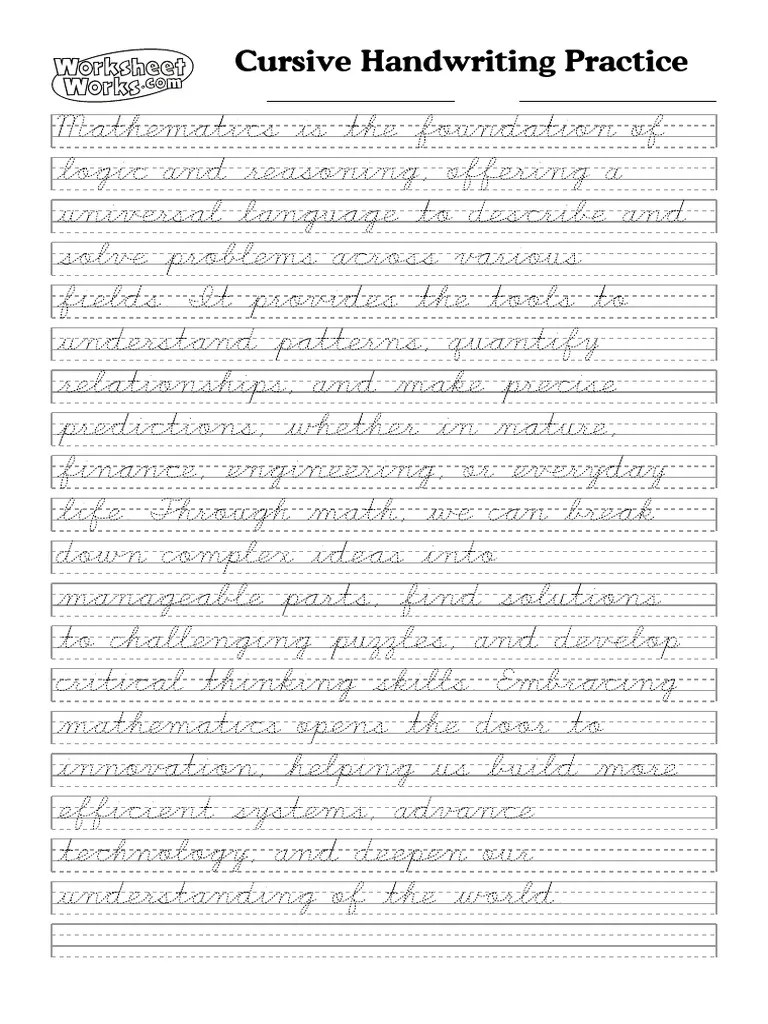 Worksheet Works.com
Cursive Handwriting Practice
Mathematics is the foundation of
logic and reasoning, offering a
universal language to describe and
solve problems across various
fields. It provides the tools to
understand patterns, quantify
relationships, and make precise
predictions, whether in nature,
finance, engineering, or everyday
life. Through math, we can break
down complex ideas into
manageable parts, find solutions
to challenging puzzles, and develop
critical thinking skills. Embracing
mathematics opens the door to
innovation, helping us build more
efficient systems, advance
technology, and deepen our
understanding of the world.